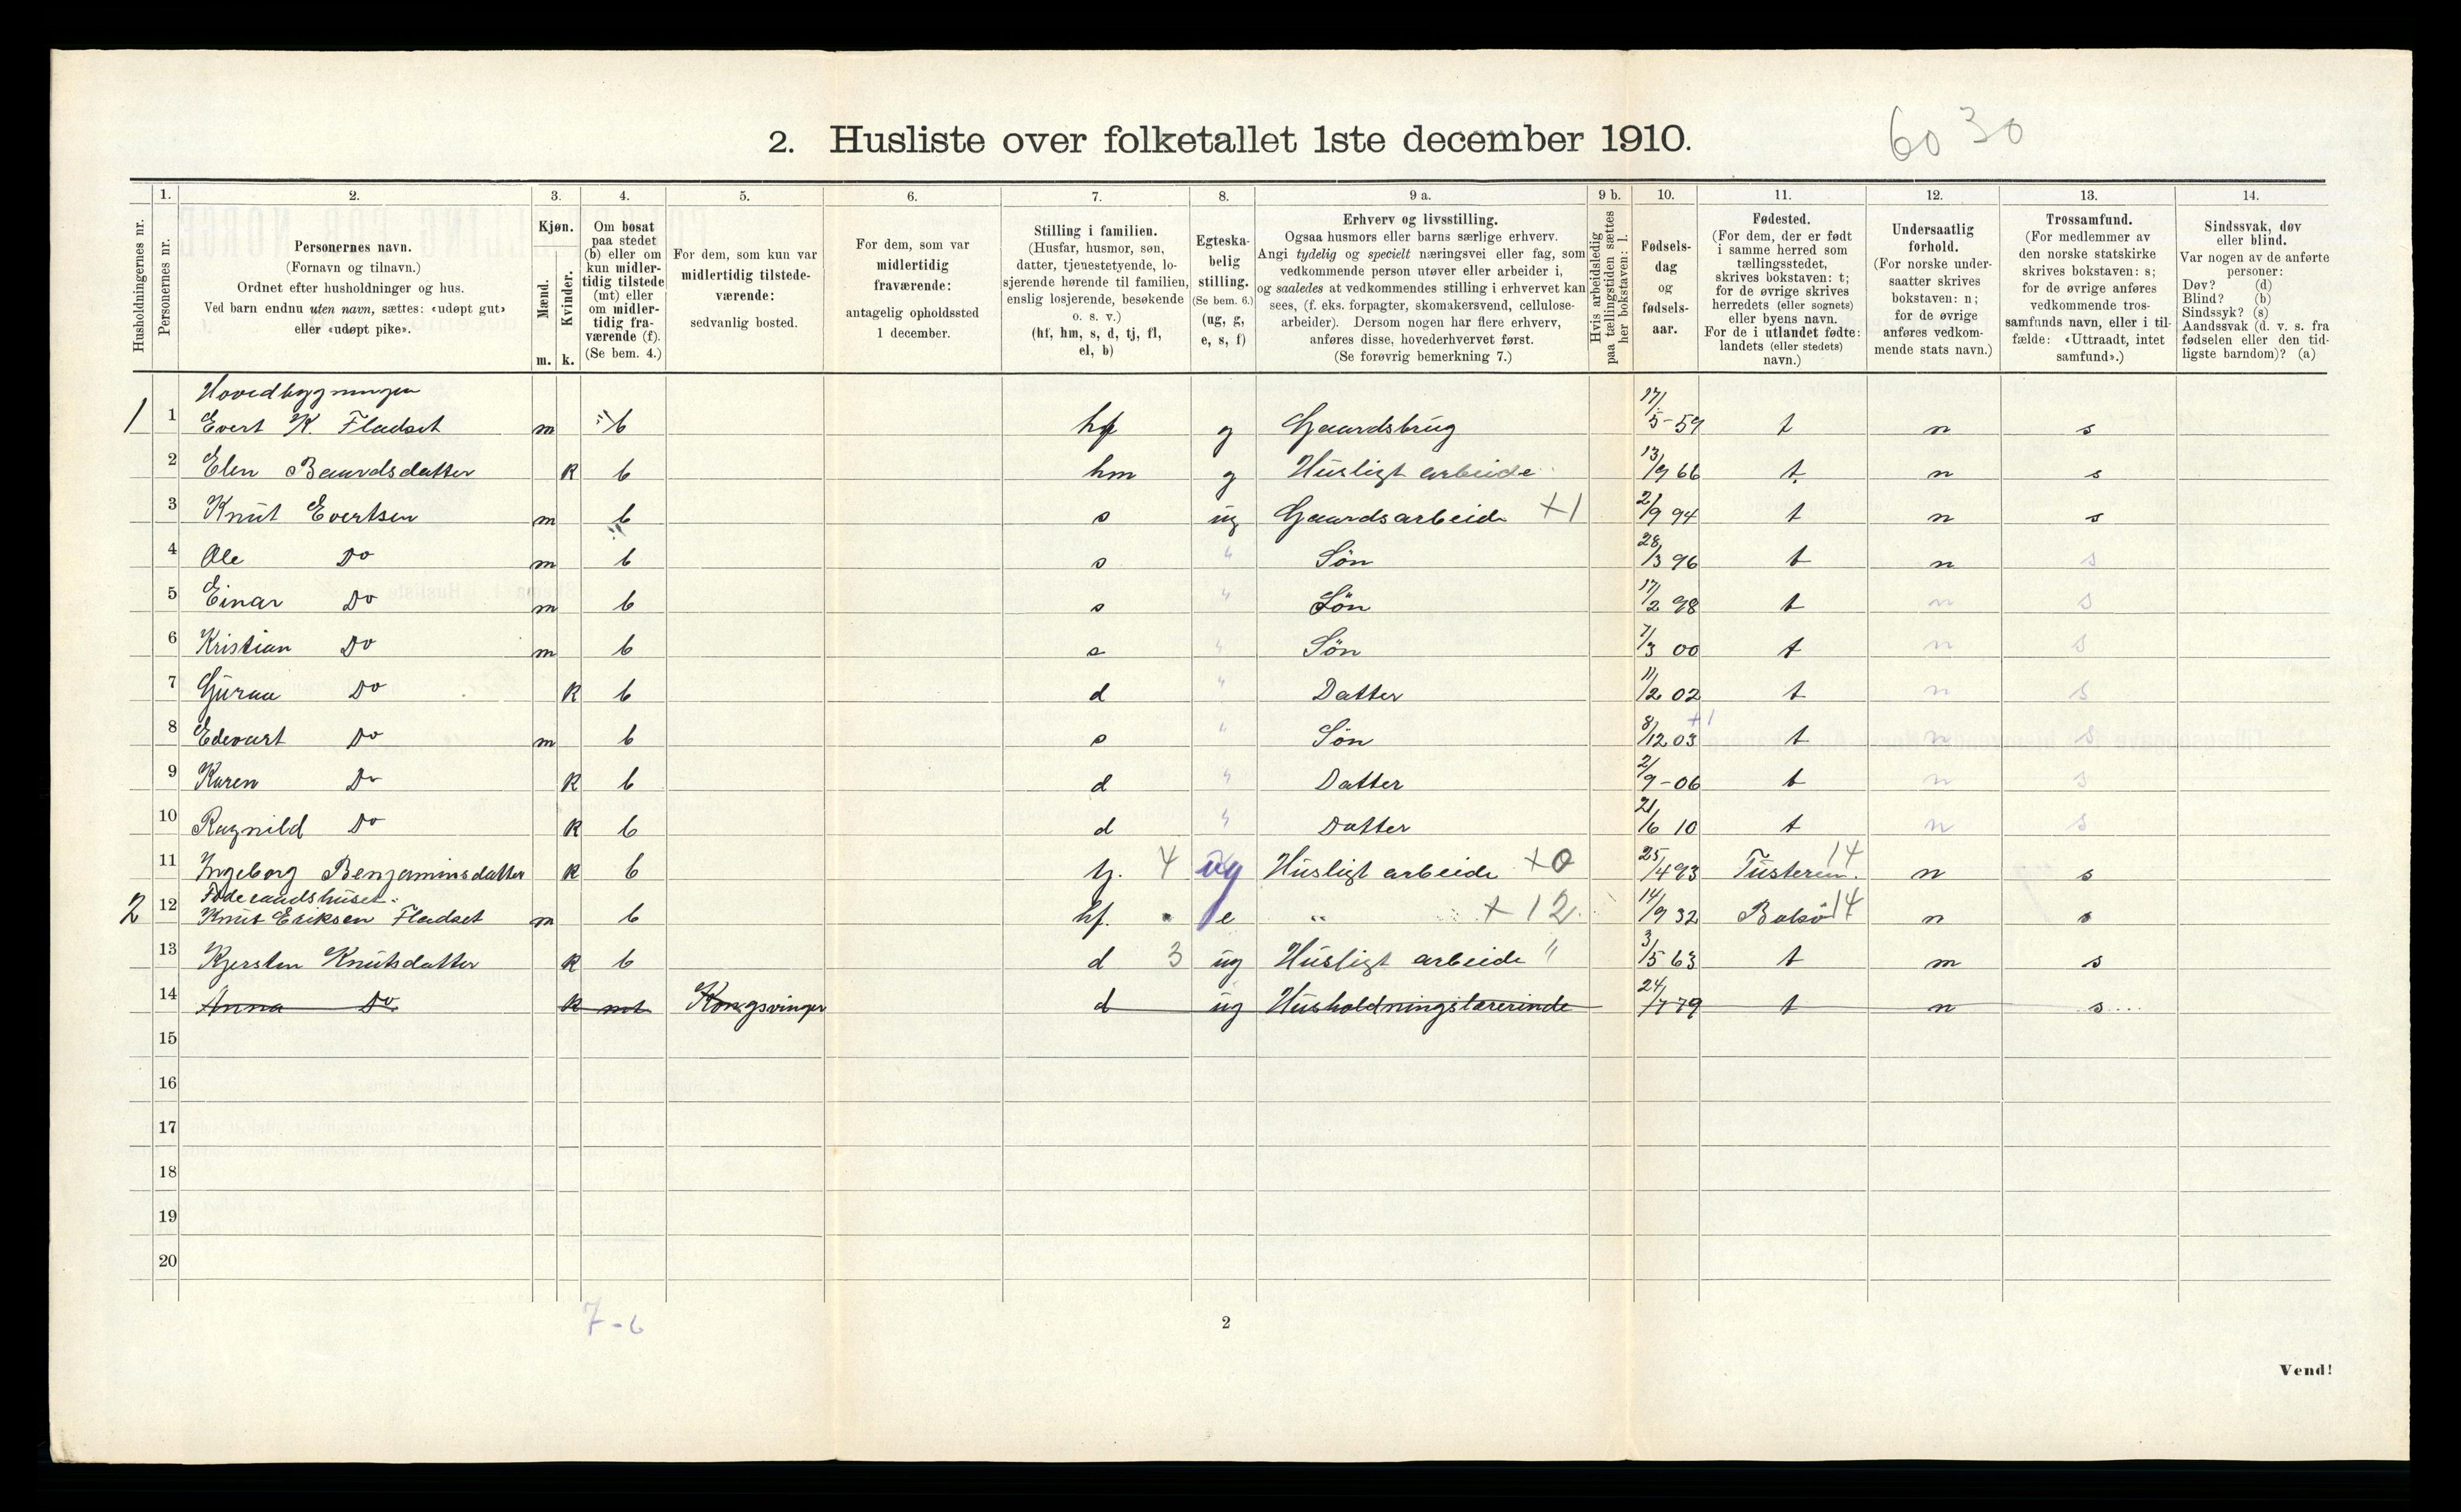 2. Husliste over folketallet 1ste december 1910.
60 30
1. 2. 3. 4. 5. 6. 7. 8. 9 a. 9 b. 10. 11. 12. 13. 14.
Husholdningernes nr.
Personernes nr.
Personernes navn.
(Fornavn og tilnavn.)
Ordnet efter husholdninger og hus.
Ved barn endnu uten navn, sættes: «udøpt gut»
eller «udøpt pike».
Kjøn.
Mænd.
m.
Kvinder.
k.
Om bosat
paa stedet
(b) eller om
kun midler-
tidig tilstede
(mt) eller
om midler-
tidig fra-
værende (f).
(Se bem. 4.)
For dem, som kun var
midlertidig tilstede-
værende:
sedvanlig bosted.
For dem, som var
midlertidig
fraværende:
antagelig opholdssted
1 december.
Stilling i familien.
(Husfar, husmor, søn,
datter, tjenestetyende, lo-
sjerende hørende til familien,
enslig losjerende, besøkende
o. s. v.)
(hf, hm, s, d, tj, fl,
el, b)
Egteska-
belig
stilling.
(Se bem. 6.)
(ug, g,
e, s, f)
Erhverv og livsstilling.
Ogsaa husmors eller barns særlige erhverv.
Angi tydelig og specielt næringsvei eller fag, som
vedkommende person utøver eller arbeider i,
og saaledes at vedkommendes stilling i erhvervet kan
sees, (f. eks. forpagter, skomakersvend, cellulose-
arbeider). Dersom nogen har flere erhverv,
anføres disse, hovederhvervet først.
(Se forøvrig bemerkning 7.)
Hvis arbeidsledig
paa tællingstiden sættes
her bokstaven: l.
Fødsels-
dag
og
fødsels-
aar.
Fødested.
(For dem, der er født
i samme herred som
tællingsstedet,
skrives bokstaven: t;
for de øvrige skrives
herredets (eller sognets)
eller byens navn.
For de i utlandet fødte:
landets (eller stedets)
navn.)
Undersaatlig
forhold.
(For norske under-
saatter skrives
bokstaven: n;
for de øvrige
anføres vedkom-
mende stats navn.)
Trossamfund.
(For medlemmer av
den norske statskirke
skrives bokstaven: s;
for de øvrige anføres
vedkommende tros-
samfunds navn, eller i til-
fælde: «Uttraadt, intet
samfund».)
Sindssvak, døv
eller blind.
Var nogen av de anførte
personer:
Døv? (d)
Blind? (b)
Sindssyk? (s)
Aandssvak (d. v. s. fra
fødselen eller den tid-
ligste barndom)? (a)
Hovedbygningen
1 1 Evert K. Fladset m b hf g Gaardsbrug 17/5-59 t n s
2 Elen Baardsdatter k b hm g Husligt arbeide 13/9 66 t. n s
3 Knut Evertsen m b s ug Gaardsarbeide +1 21/9 94 t n s
4 Ole Do m b s " Sön 28/3 96 t n s
5 Einar Do m b s " Sön 17/2 98 t n s
6 Kristian Do m b s " Sön 7/3 00 t n s
7 Guraa Do k b d " Datter 11/2 02 t n s
8 Edevart Do m b s " Sön 8/12 03 +1 t n s
9 Karen Do k b d " Datter 2/9-06 t n s
10 Ragnild Do k b d " Datter 21/6 10 t n s
11 Ingeborg Benjaminsdatter k b tj. 4 ug Husligt arbeide +0 25/4 93 Tusteren. 14 n s
Föderaadshuset.
2 12 Knut Eriksen Fladset m b hf. e " +12 14/9 32 Bolsö 14 n s
13 Kjersten Knutsdatter k b d 3 ug Husligt arbeide " 3/5 63 t n s
14 Anna Do k mt Kongsvinger d ug Husholdningslærerinde 24/7 79 t n s
15
16
17
18
19
20
7-6
2
Vend!